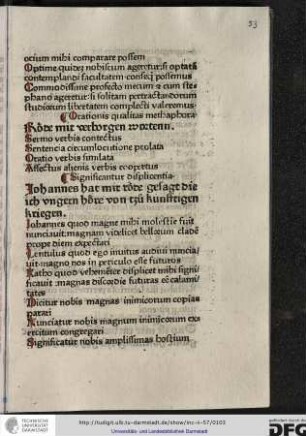 53
ocium mihi comparare possem
Optime quidez nobiscum ageretur: si optatā
contemplandi facultatem conseq̄ possemus
Commodissime profecto mecum & cum ste⸗
phano ageretur: si solitam pertractandorum
studiorum libertatem complecti valeremus
Orationis qualitas methaphora
Rőde mit verborgen worttenn.
Sermo verbis contectus
Sentencia circumlocutione prolata
Oratio verbis simulata
Affectus alienis verbis coopertus
Significantur displicentia
Johannes hat mir rőde gesagt die
ich vngern hőre von tzů kunfftigen
kriegen.
Johannes quod magne mihi molestie fuit
nunciauit: magnam videlicet bellorum cladē
prope diem expectari
Lentulus quod ego inuitus audiui nuncia⸗
uit magno nos in periculo esse futuros
Katho quod vehemēter displicet mihi signi
ficauit magnas discordie futuras eē calami
tates
Dicitur nobis magnas inimicorum copias
parari
Nunciatur nobis magnum inimicorum ex⸗
ercitum congregari
Significatur nobis amplissimas hostium
TECHNISCHE
UNIVERSITÄT
DARMSTADT
http://tudigit.ulb.tu-darmstadt.de/show/inc-ii-57/0103
Universitäts- und Landesbibliothek Darmstadt
gefördert durch die
DFG